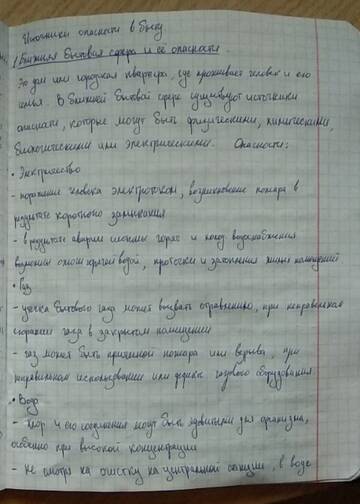 Источники опасности в быту.
1. Ближняя бытовая сфера и её опасности.
Это дом или городская квартира, где проживает человек и его
семья. В ближней бытовой сфере существуют источники
опасности, которые могут быть физическими, химическими,
биологическими или электрическими. Опасности:
• Электричество
- поражение человека электротоком, возникновение пожара в
результате короткого замыкания
- в результате аварии системы горяч. и холод. водоснабжения
возможны ожоги горячей водой, протечки и затопления жилых помещений
• Газ
- утечка бытового газа может вызвать отравление, при неправильном
сгорании газа в закрытом помещении
- газ может быть причиной пожара или взрыва, при
неправильном использовании или дефекте газового оборудования
• Вода
- хлор и его соединения могут быть ядовитыми для организма,
особенно при высокой концентрации
- не смотря на очистку на центральной станции, в воде